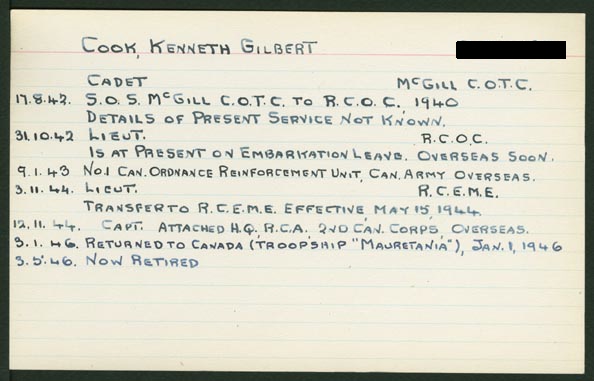 COOK, KENNETH GILBERT
CADET McGILL C.O.T.C.
17.8.42. S.O.S. McGILL C.O.T.C. TO R.C.O.C., 1940
DETAILS OF PRESENT SERVICE NOT KNOWN.
31.10.42 LIEUT. R.C.O.C.
IS AT PRESENT ON EMBARKATION LEAVE. OVERSEAS SOON.
9.1.43 NO.1 CAN. ORDNANCE REINFORCEMENT UNIT, CAN. ARMY OVERSEAS.
3.11.44. LIEUT. R.C.E.M.E.
TRANSFER TO R.C.E.M.E. EFFECTIVE, MAY 15, 1944.
12.11.44. CAPT. ATTACHED H.Q., R.C.A. 2ND CAN. CORPS, OVERSEAS.
3.1.46. RETURNED TO CANADA (TROOPSHIP "MAURETANIA"), JAN. 1, 1946
3.5.46. NOW RETIRED